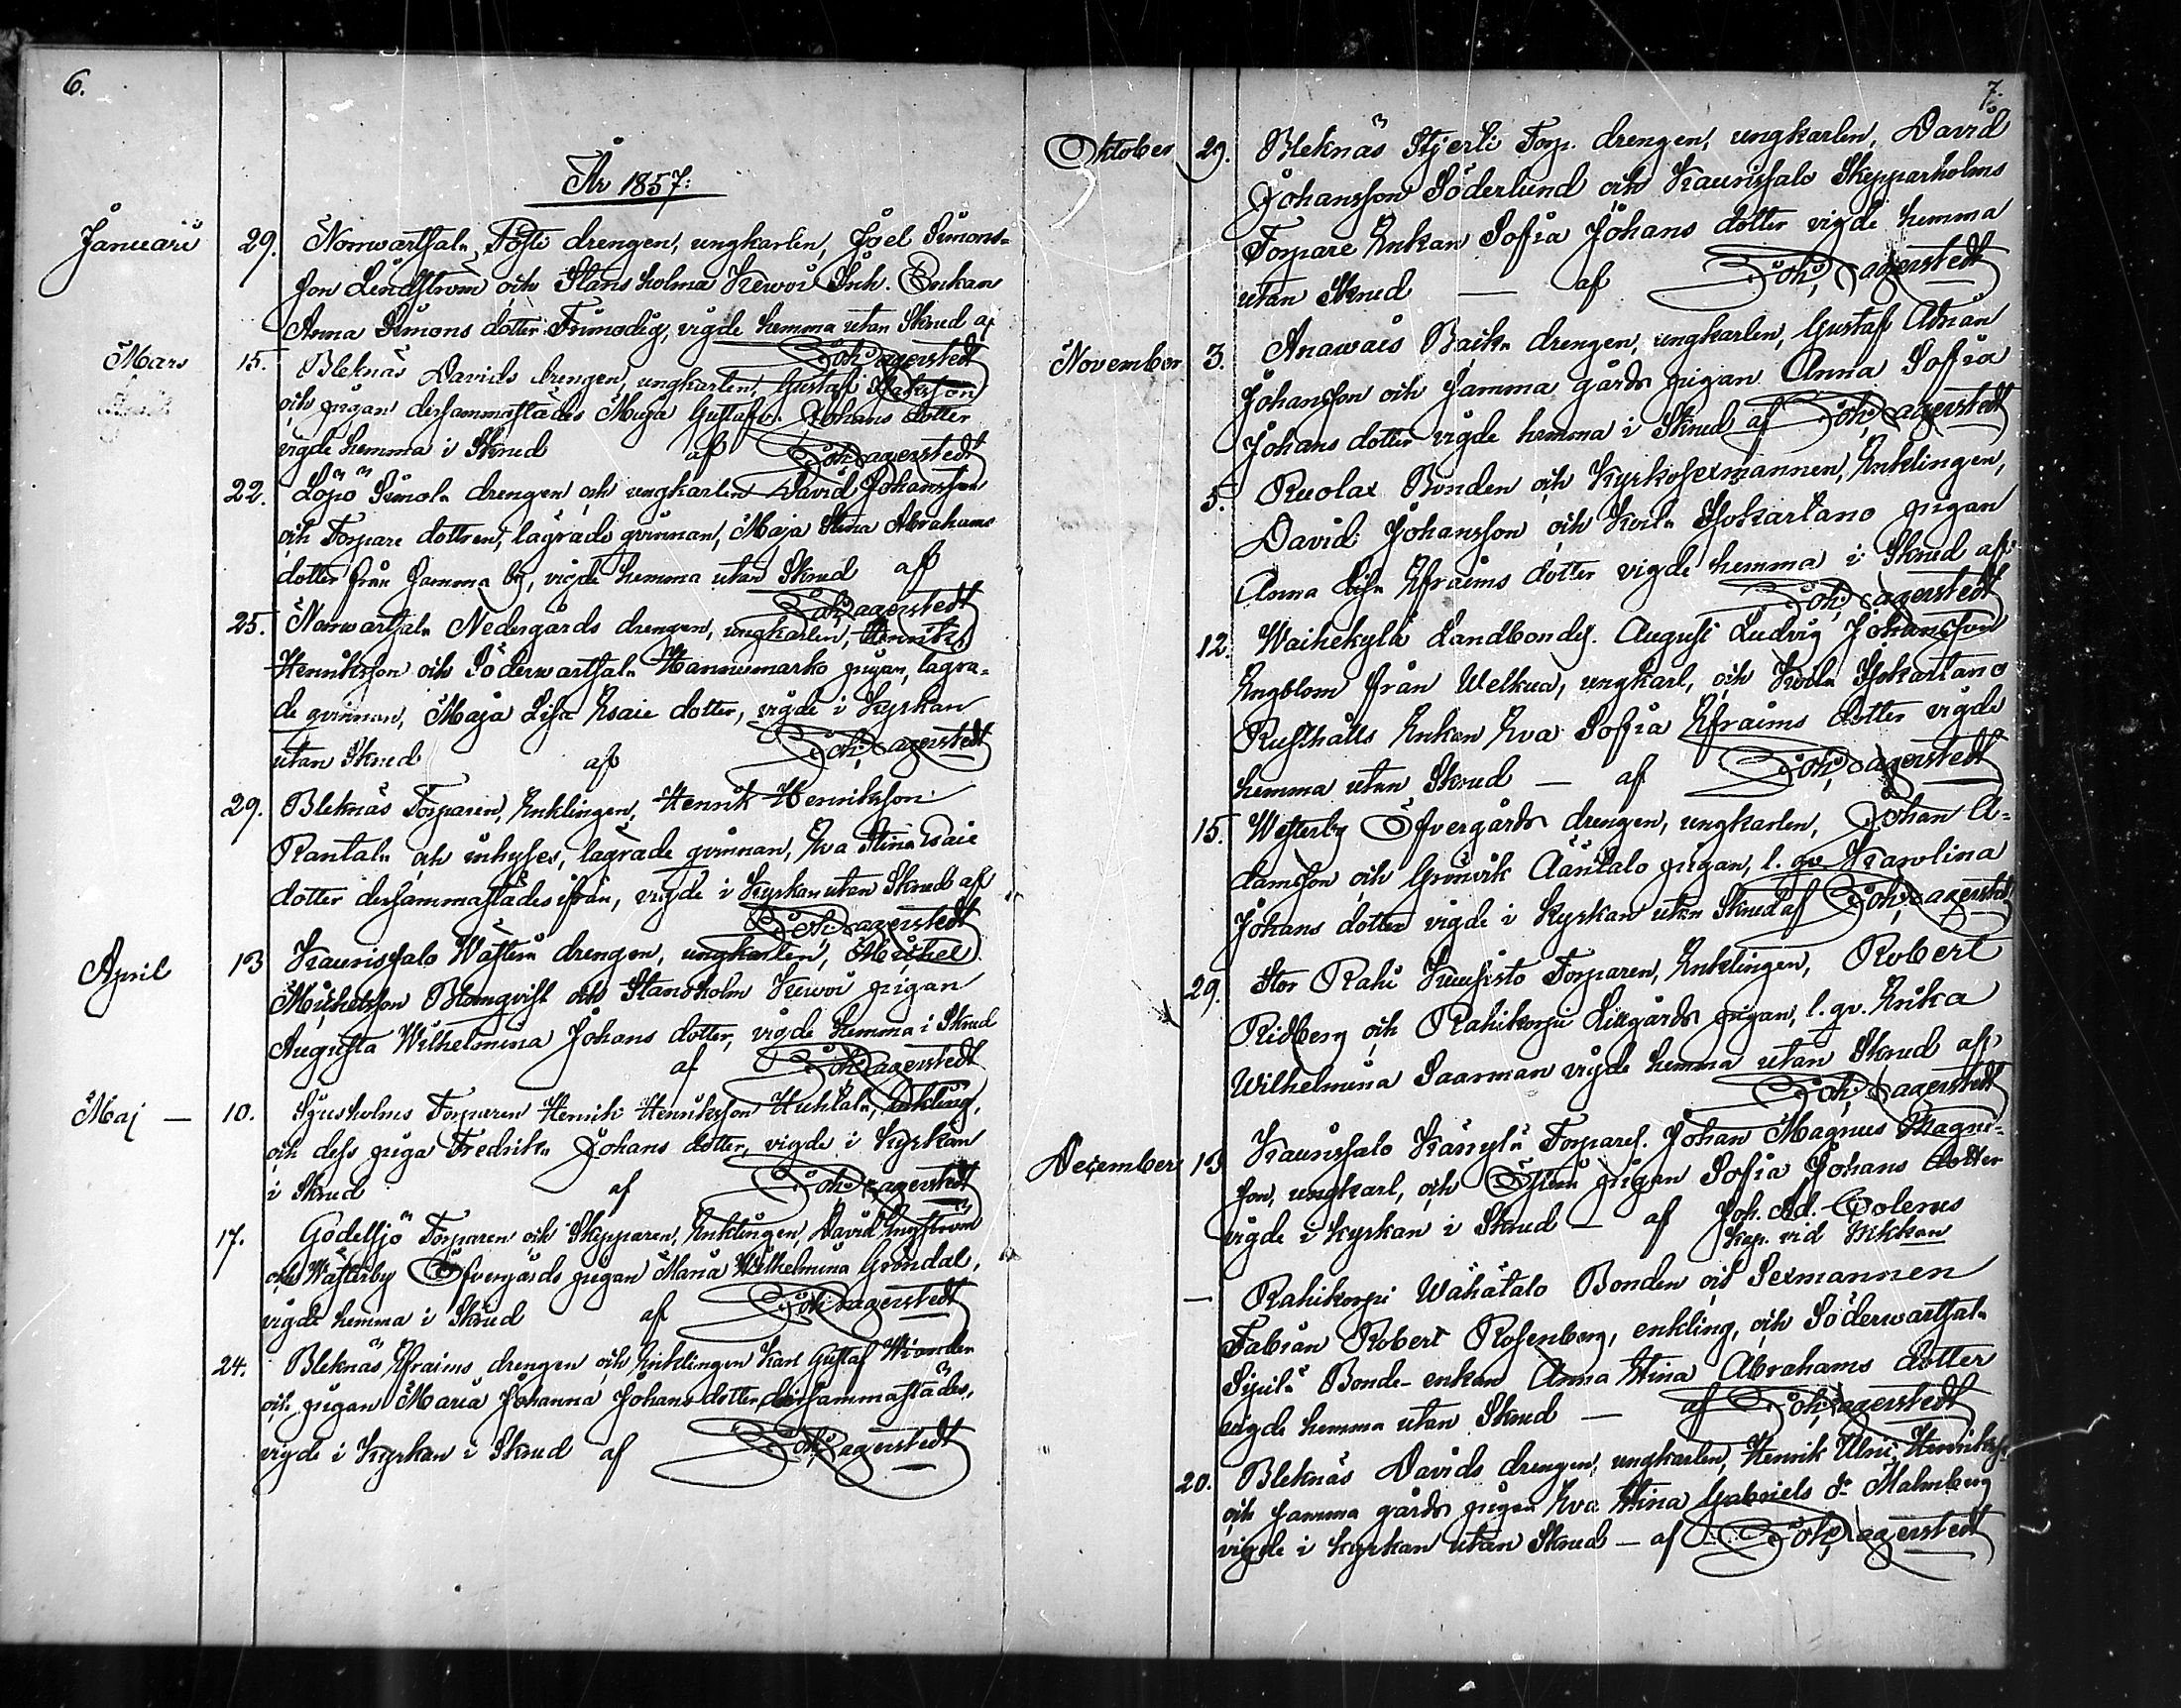 6.
År 1857:
Januari 29. Norrwartsala Posti drengen, ungkarlen, Joel Simons-
son Lindström och Stans holma Kewoi Inh. Enkan
Anna Simons dotter Frimodig, vigde hemma utan Skrud af
Joh. Lagerstedt
Mars 15. Bleknäs Davids drengen, ungkarlen, Gustaf
och pigan dersammastädes Maja Gustafva Johans dotter
vigde hemma i Skrud af Joh. Lagerstedt
22. Löpö Simola drengen och ungkarlen David Johansson
och Torpare dottren, lägrade qvinnan, Maja Stina Abrahams
dotter från samma by, vigde hemma utan Skrud af
Joh. Lagerstedt
25. Norrwartsala Nedergårds drengen, ungkarlen, Henrik
Henriksson och Söderwartsala Hannunmarko pigan, lägra-
de qvinnan, Maja Lisa Esaie dotter, vigde i Kyrkan
utan Skrud af Joh. Lagerstedt
29. Bleknäs Torparen, Enklingen, Henrik Henriksson
Rantala och inhyses, lägrade qvinnan, Eva Stina Esaie
dotter dersammastädes ifrån, vigde i Kyrkan utan Skrud af
Joh. Lagerstedt
April 13 Kaurissalo Wästerå drengen, ungkarlen, Michel
Michelsson Blomqvist och Stansholm Kewoi pigan
Augusta Wilhelmina Johans dotter, vigde hemma i Skrud
af Joh. Lagerstedt
Maj — 10. Torparen Henrik Henriksson Huhtala, Enkling,
och dess piga Fredrika Johans dotter, vigde i Kyrkan
i Skrud af Joh. Lagerstedt
17. Gödelsjö Torparen och Skepparen, Enklingen, David Engström
och Wästerby Öfvergårds pigan Maria Wilhelmina Gröndal,
vigde hemma i Skrud af Joh. Lagerstedt
24. Bleknäs Efraims drengen och Enklingen Karl Gustaf Wiander
och pigan Maria Johanna Johans dotter dersammastädes,
vigde i Kyrkan i Skrud af Joh. Lagerstedt
7.
Oktober 29. Bleknäs Stjerli Torp. drengen, ungkarlen, David
Johansson Söderlund och Kaurissalo Skepparholms
Torpare Enkan Sofia Johans dotter vigde hemma
utan Skrud — af Joh. Lagerstedt
November 3. Anawais Baika drengen, ungkarlen, Gustaf Adrian
Johansson och samma gårds pigan Anna Sofia
Johans dotter vigde hemma i Skrud af Joh. Lagerstedt
5. Ruolax Bonden och Kyrkosexmannen, Enklingen,
David Johansson och Kvila Isokartano pigan
Anna Lisa Efraims dotter vigde hemma i Skrud af
Joh. Lagerstedt
12. Waihekylä Landbonds. August Ludvig Johansson
Engblom från Welkua, ungkarl, och Kvila Isokartano
Rusthålls Enkan Eva Sofia Efraims dotter vigde
hemma utan Skrud — af Joh. Lagerstedt
15. Westerby Öfvergårds drengen, ungkarlen, Johan A-
damsson och Grönvik Äärilalo pigan, l. qv. Karolina
Johans dotter vigde i Kyrkan utan Skrud af Joh. Lagerstedt
29. Stor Rahi Kuusisto Torparen, Enklingen, Robert
Ridberg och Rahikorpi Lillgårds pigan, l. qv. Erika
Wilhelmina Saarman vigde hemma utan Skrud af
Joh. Lagerstedt
December 13 Kaurissalo Torpares. Johan Magnus Magni-
son, ungkarl, och pigan Sofia Johans dotter
vigde i kyrkan i Skrud — af Joh. Ad. Polenus
Kap. vid
— Rahikorpi Wähätalo Bonden och Sexmannen
Fabian Robert Rosenberg, enkling, och Söderwartsala
Sipilä Bonde-enkan Anna Stina Abrahams dotter
vigde hemma utan Skrud — af Joh. Lagerstedt
20. Bleknäs Davids drengen, ungkarlen, Henrik Ulric Henrikss.
och samma gårds pigan Eva Stina Gabriels dr Malmberg
vigde i kyrkan utan Skrud — af Joh. Lagerstedt